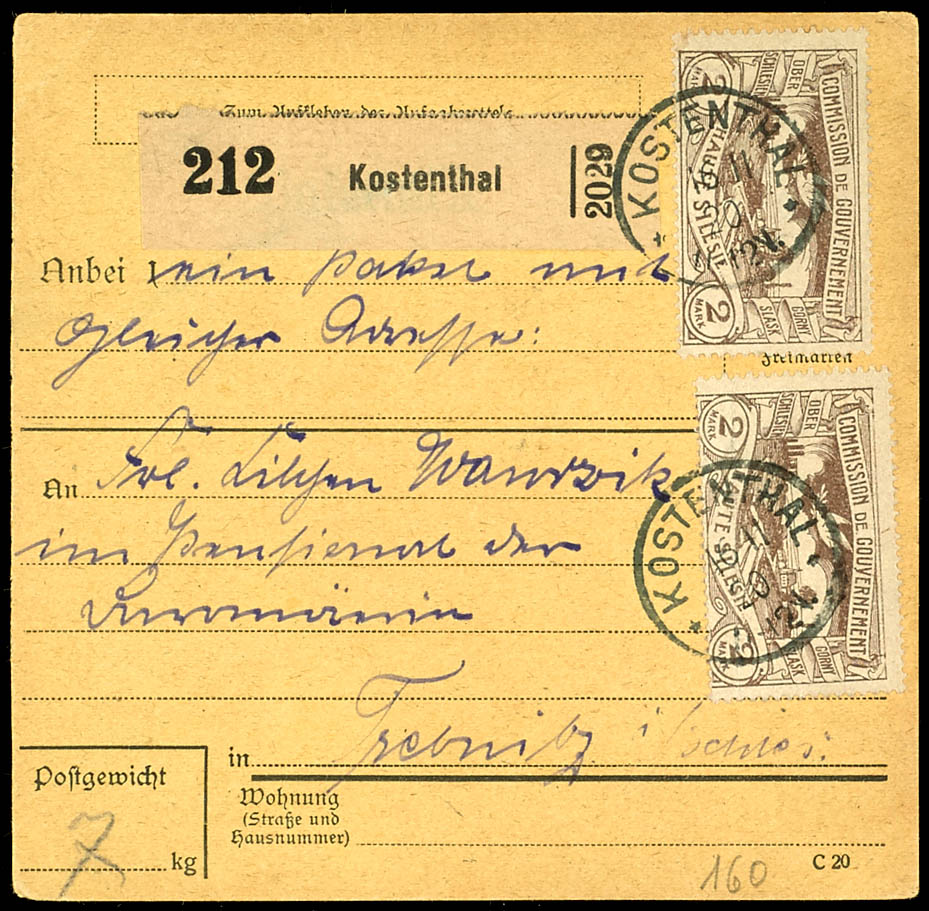 Zum Aufkleben des Aufgabezettels
212 Kostenthal 2029
Anbei ein Paket mit
gleicher Adresse:
Freimarken
An Frl. Lilchen Wawrzik
im Pensionat der
in Trebnitz i/Schles:
Postgewicht
7 kg
Wohnung
(Straße und
Hausnummer)
160
C 20
COMMISSION DE GOUVERNEMENT
HAUTE SILESIE
OBER
SCHLESIEN
GORNY
SLASK
2
MARK
2
MARK
KOSTENTHAL
COMMISSION DE GOUVERNEMENT
OBER
SCHLESIEN
GORNY
SLASK
2
MARK
2
MARK
KOSTENTHAL